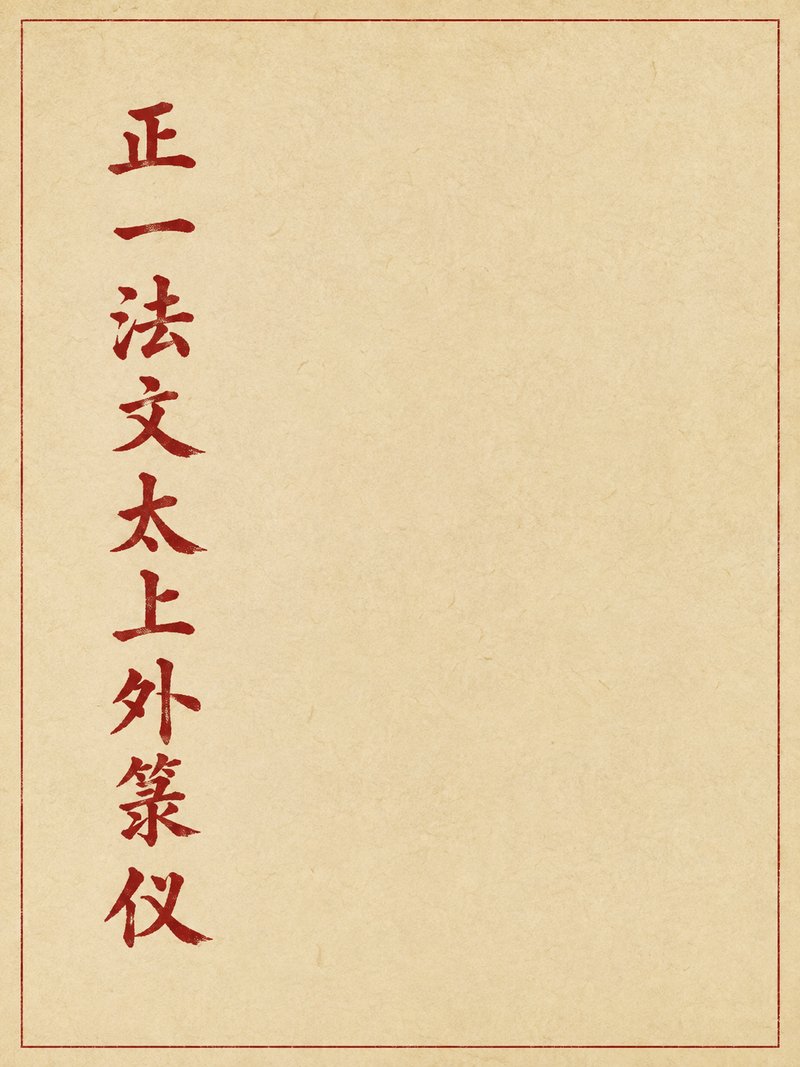 正一法文太上外箓仪